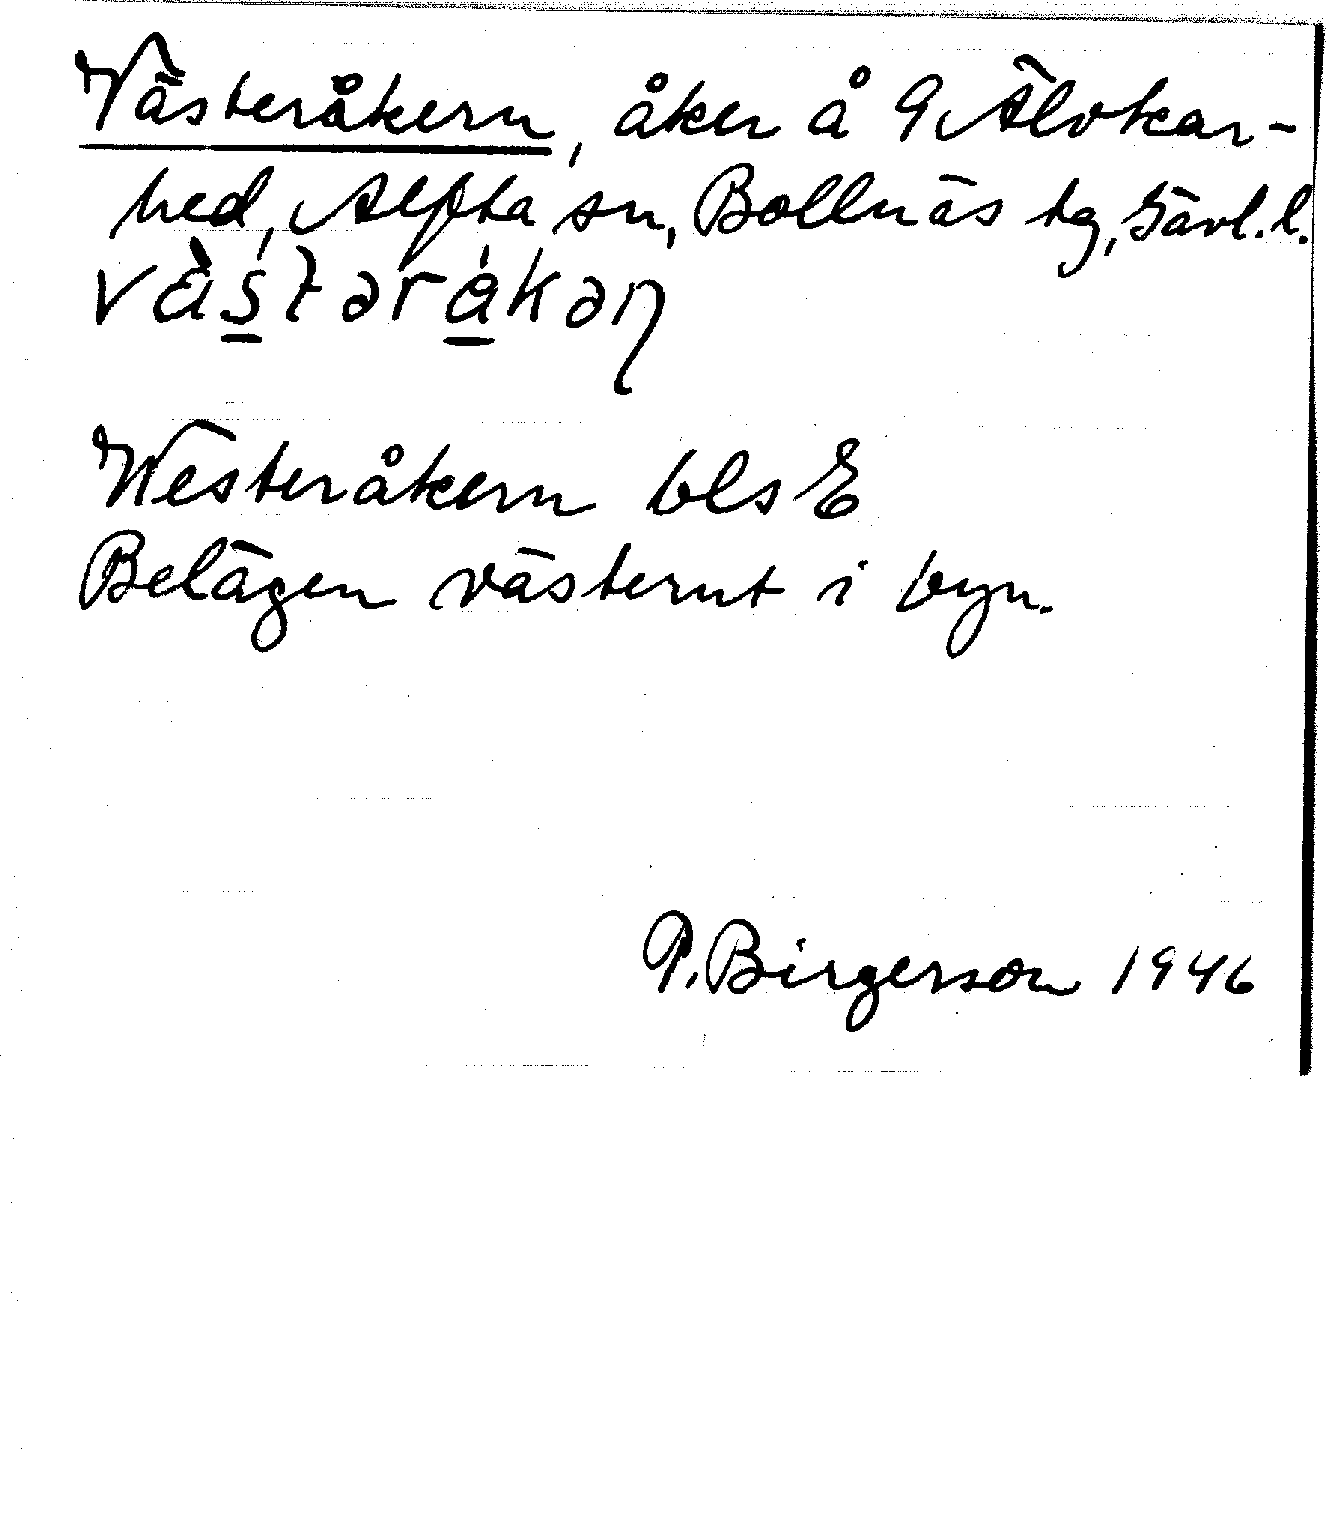 Västeråkern, åker å 9 Älvkar-
hed, Alfta sn, Bollnäs tg, Gävl. l.
Westeråkern bls E
Belägen västerut i byn.
P. Birgerson 1946